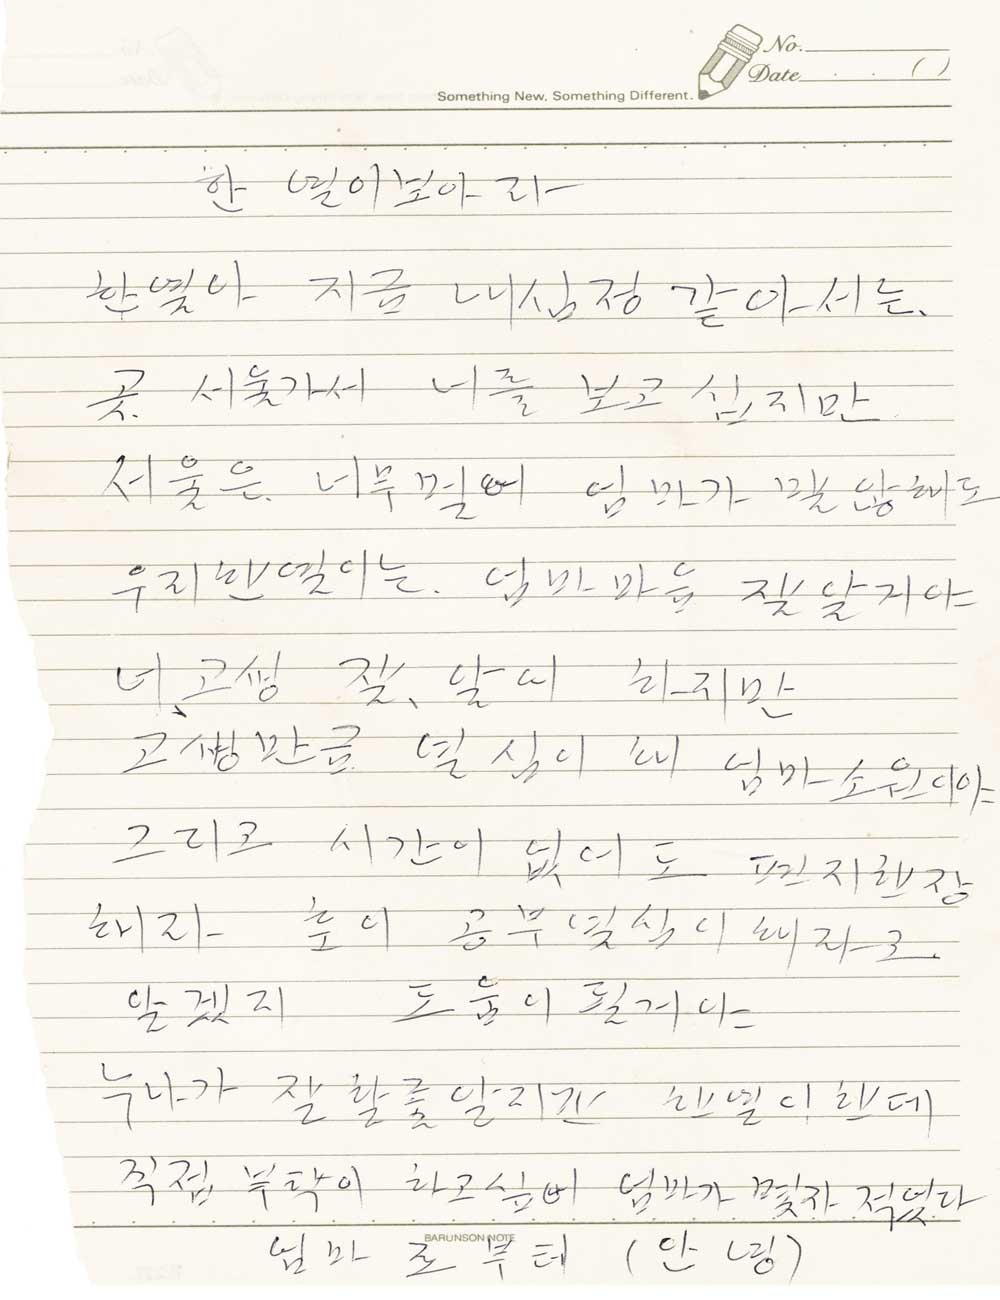 No.
Date . . ( )
Something New, Something Different.
한 열이보아라
한열아 지금 내심정 같아서는.
곳. 서울가서 너를 보고 십지만
서울은. 너무멀어 엄마가 말않해도
우리한열이는. 엄마마음 잘알지야
너,고생 잘, 알어 하지만
고생만큼 열심이 해 엄마소원이야
그리고 시간이 없어도 편지한장
해라 훈이 공부열심이 해라고.
알겠지 도움이 될거야
누나가 잘 할줄알지만 한열이한테
직접 부탁이 하고십어 엄마가 몇자 적었다
BARUNSON NOTE
엄마 로부터 (안녕)